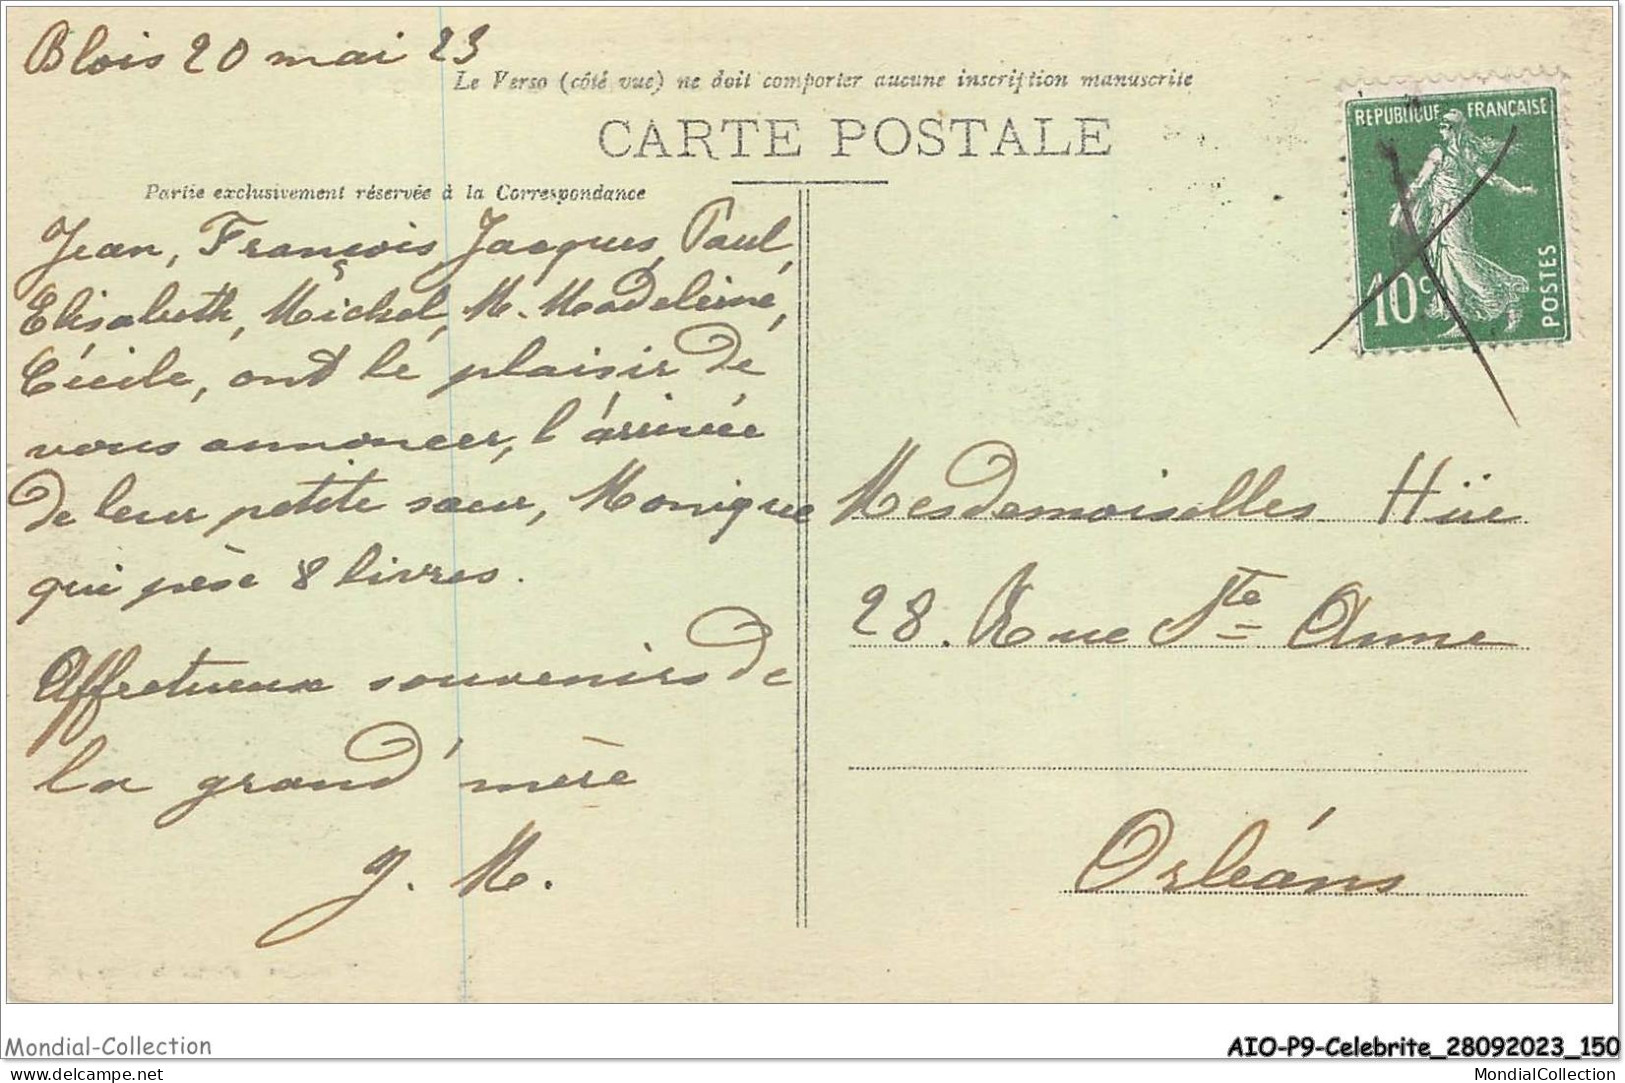 Blois 20 mai 23
Le Verso (côté vue) ne doit comporter aucune inscription manuscrite
CARTE POSTALE
Partie exclusivement réservée à la Correspondance
REPUBLIQUE FRANÇAISE
10c
POSTES
Jean, François, Jacques, Paul,
Elisabeth, Michel, M. Madeleine,
Cécile, ont le plaisir de
vous annoncer, l'arrivée
de leur petite sœur, Monique
qui pèse 8 livres.
Affectueux souvenirs de
la grand'mère
J. M.
Mesdemoiselles Hüe
28. Rue Ste Anne
Orléans
Mondial-Collection
AIO-P9-Celebrite_28092023_150
delcampe.net
MondialCollection